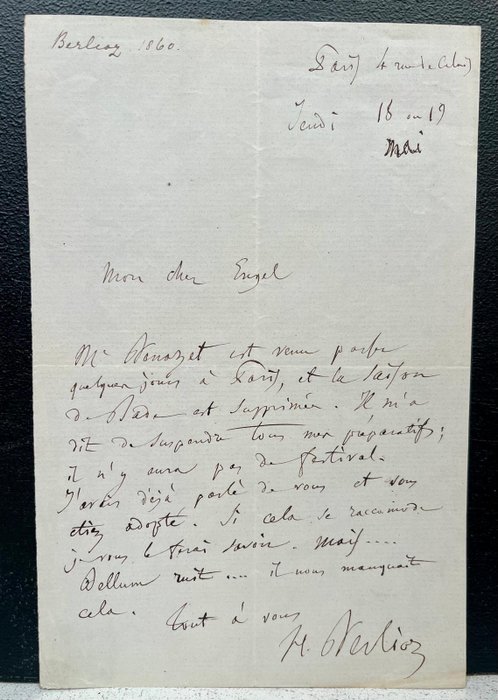 Berlioz 1860.
Paris 4 rue de Calais
Jeudi 18 ou 19
Mai
Mon cher Engel
Mr Benazet est venu passer
quelques jours à Paris, et la saison
de Bade est supprimée. Il m'a
dit de suspendre tous mes préparatifs;
il n'y aura pas de festival.
J'avais déjà parlé de vous et vous
étiez adopté. Si cela se raccomode
je vous le ferai savoir. Mais....
Bellum ruit.... il nous manquait
cela.
tout à vous
H. Berlioz